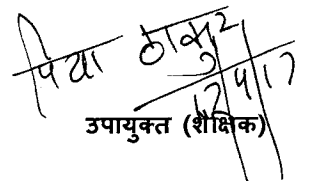 पिया ठाकुर
12/9/17
उपायुक्त (शैक्षिक)